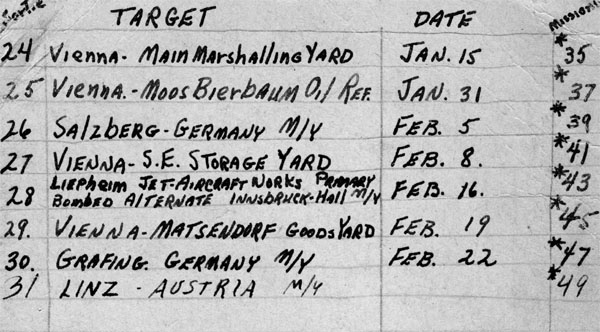 Sortie TARGET DATE Missions
24 Vienna- Main Marshalling YARD JAN. 15 *35
25 Vienna.- Moos Bierbaum Oil Ref. JAN. 31 *37
26 SALZBERG-GERMANY M/Y FEB. 5 *39
27 VIENNA- S.E. STORAGE YARD FEB. 8. *41
28 LIEPHEIM JET-AIRCRAFT WORKS PRIMARY FEB. 16. *43
BOMBED ALTERNATE INNSBRUCK-HALL M/Y
29. VIENNA-MATSENDORF GOODS YARD FEB. 19 *45
30. GRAFING. GERMANY M/Y FEB. 22 *47
31 LINZ - AUSTRIA M/Y *49